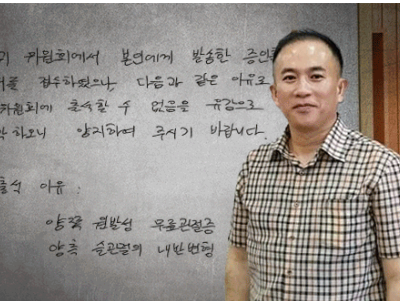 위원회에서 본인에게 발송한 증인출
를 접수하였으나, 다음과 같은 이유로
위원회에 출석할 수 없음을 유감으로
하오니 양지하여 주시기 바랍니다.
출석 이유 :
양쪽 원발성 무릎관절증
양측 슬관절의 내반변형